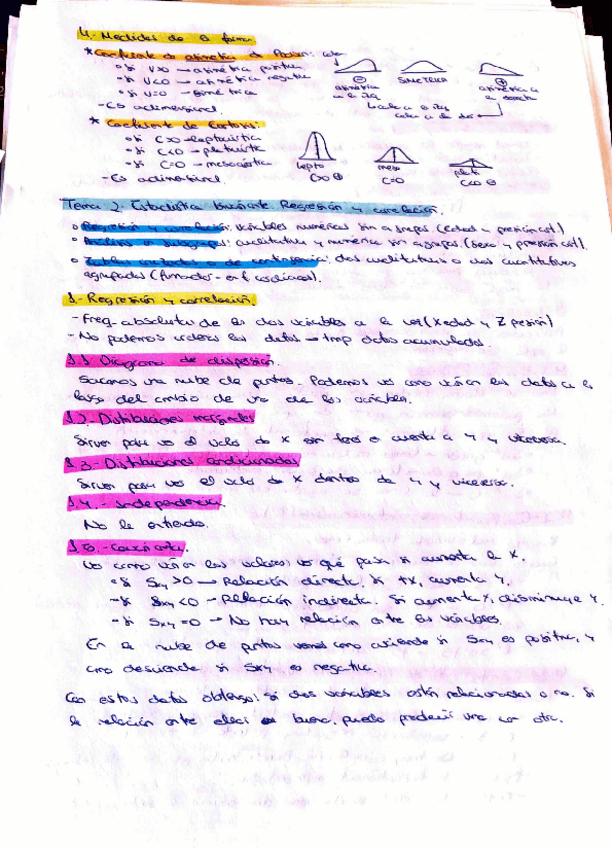 4.- Medidas de la forma.
* Coeficiente de asimetría de Pearson:
• Si V>0 → asimétrica positiva
• Si V<0 → asimétrica negativa
• Si V=0 → simétrica
- Es adimensional.
asimétrica a la izq
SIMÉTRICA
asimétrica a la derecha
* Coeficiente de Curtosis:
• Si C>0 → leptocúrtica
• Si C<0 → platicúrtica
• Si C=0 → mesocúrtica
- Es adimensional.
lepto C>0 ⊕
meso C=0
plati C<0 ⊖
Tema 2. Estadística bivariante. Regresión y correlación.
• Regresión y correlación: variables numéricas sin agrupar. (edad y presión art.)
• Análisis en subgrupos: cualitativa y numérica sin agrupar. (sexo y presión art).
• Tablas cruzadas o de contingencia: dos cualitativas o dos cuantitativas
agrupadas (fumador - enf. cardiaca).
1.- Regresión y correlación.
- Freq. absolutas de las dos variables a la vez (X edad y Z presión)
- No podemos ordenar los datos → tmp datos acumulados.
1.1 Diagrama de dispersión.
Sacamos una nube de puntos. Podemos ver como varían los datos a lo
largo del cambio de una de las variables.
1.2.- Distribuciones marginales
Sirven para ver el valor de X sin tener en cuenta a Y y viceversa.
1.3.- Distribuciones condicionadas
Sirven para ver el valor de X dentro de Y y viceversa.
1.4.- Independencia.
No lo entiendo.
1.5.- Covarianza.
Ves como varían los valores, ves qué pasa si aumenta la X.
• Si Sxy >0 → Relación directa. Si ↑X, aumenta Y.
- Si Sxy <0 → Relación indirecta. Si aumenta X, disminuye Y.
- Si Sxy =0 → No hay relación entre las variables.
En la nube de puntos vemos como asciende si Sxy es positiva, y
como desciende si Sxy es negativa.
Con estos datos obtengo: si dos variables están relacionadas o no. Si
la relación entre ellas es buena, puedo predecir una con otra.